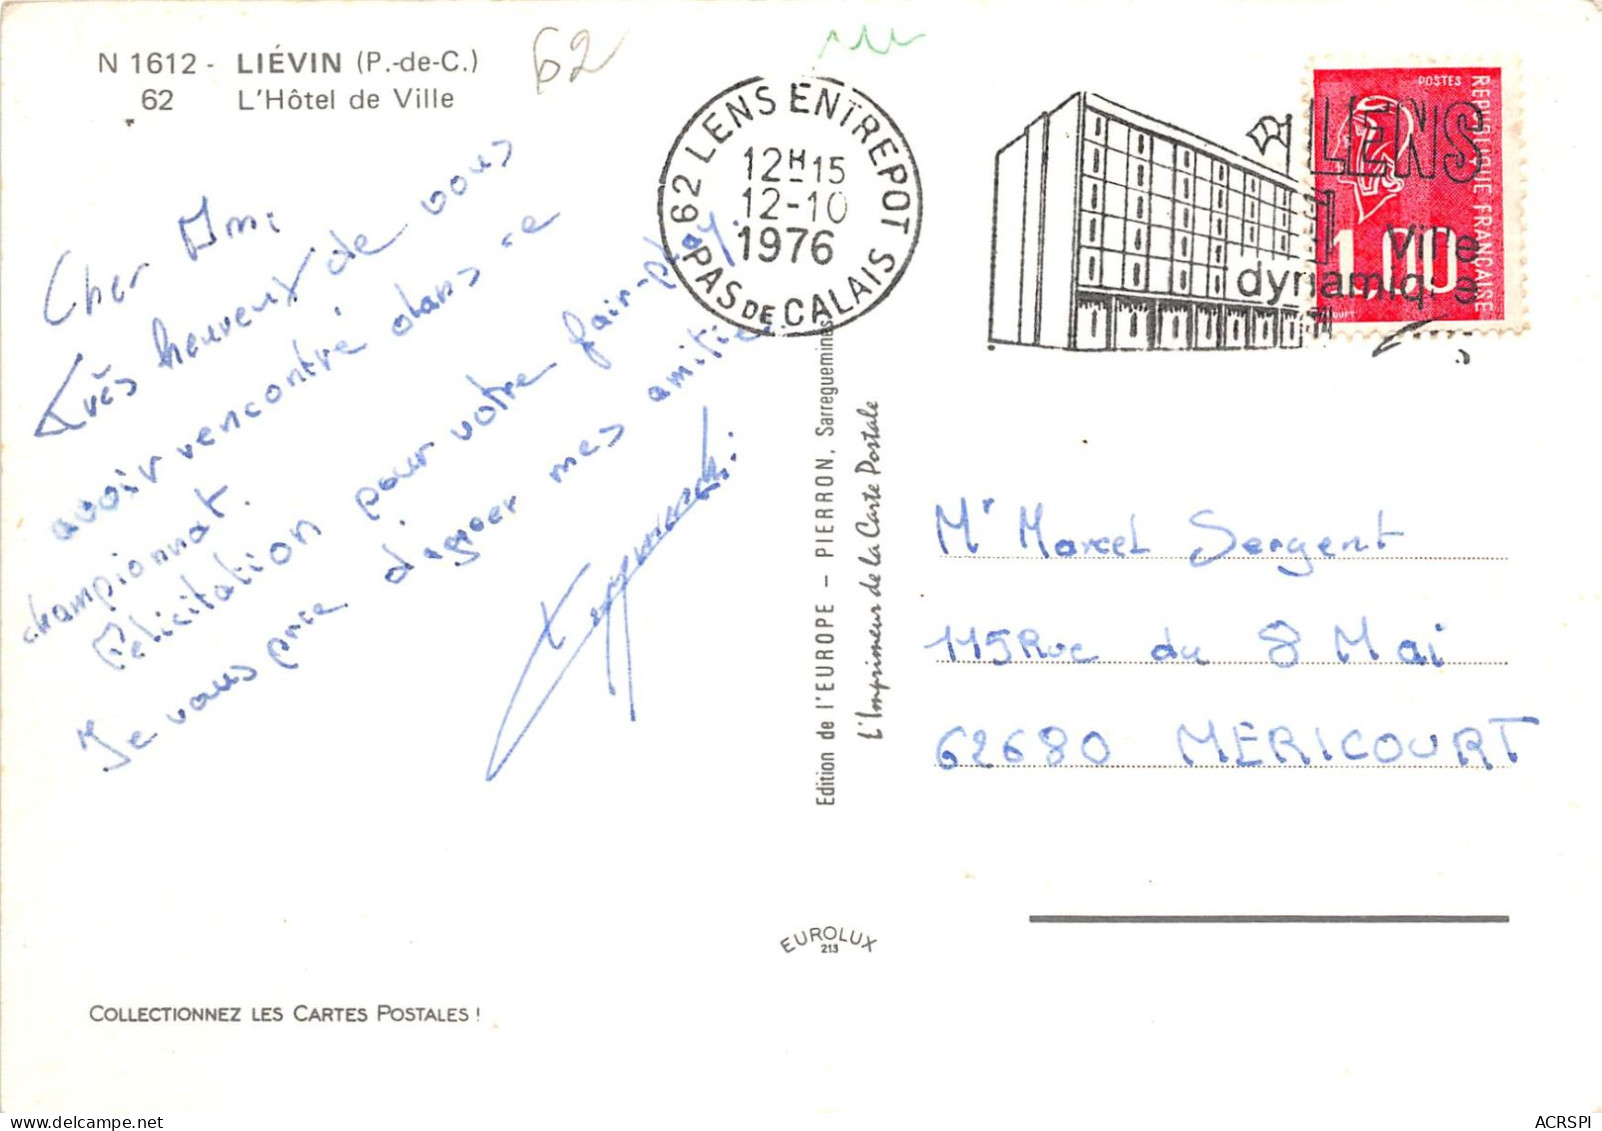 N 1612 - LIÉVIN (P.-de-C.)
62 L'Hôtel de Ville
62
Cher Ami
Très heureux de vous
avoir rencontré dans ce
championnat.
Félicitation pour votre fair-play.
Je vous prie d'agréer mes amitiés.
62 LENS ENTREPOT
12H15
12-10
1976
PAS DE CALAIS
LENS
Ville
dynamique
POSTES
REPUBLIQUE FRANÇAISE
1,00
Edition de l'EUROPE – PIERRON, Sarreguemines
L'Imprimeur de la Carte Postale
Mr Marcel Sergent
115 Rue du 8 Mai
62680 MERICOURT
EUROLUX
213
COLLECTIONNEZ LES CARTES POSTALES !
ACRSPI